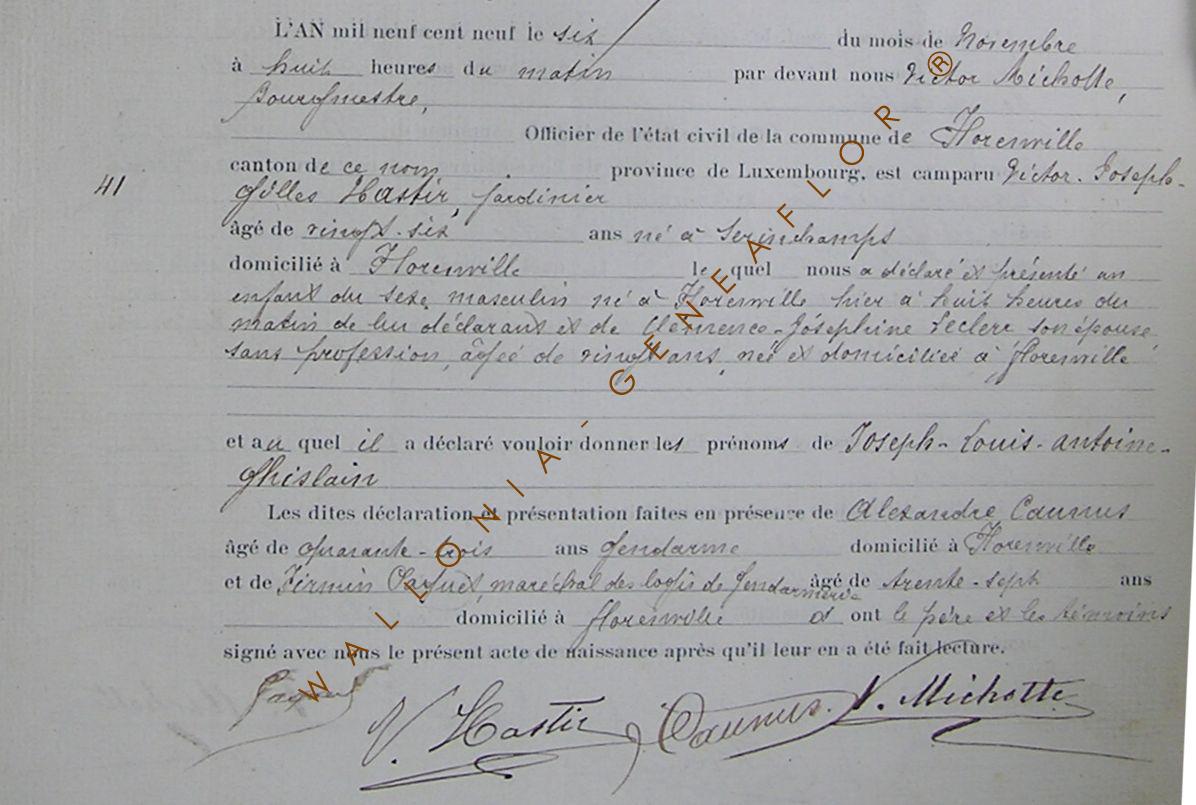 L'AN mil neuf cent neuf le six du mois de Novembre
à huit heures du matin par devant nous Victor Michotte,
Bourgmestre,
Officier de l'état civil de la commune de Florenville
canton de ce nom province de Luxembourg, est camparu Victor-Joseph-
41
Gilles Hastir, jardinier
âgé de vingt-six ans né à Serinchamps
domicilié à Florenville le quel nous a déclaré et présenté un
enfant du sexe masculin né à Florenville hier à huit heures du
matin de lui déclarant et de Clémence-Joséphine Leclerc son épouse,
sans profession, âgée de vingt ans, née et domiciliée à Florenville
et au quel il a déclaré vouloir donner les prénoms de Joseph-Louis-Antoine-
Ghislain
Les dites déclaration et présentation faites en présence de Alexandre Caunus
âgé de quarante-trois ans Gendarme domicilié à Florenville
et de Firmin maréchal des logis de Gendarmerie âgé de trente-sept ans
domicilié à Florenville et ont le père et les témoins
signé avec nous le présent acte de naissance après qu'il leur en a été fait lecture.
V. Hastir Caunus. V. Michotte
WALLONIA-GENEAFLOR®